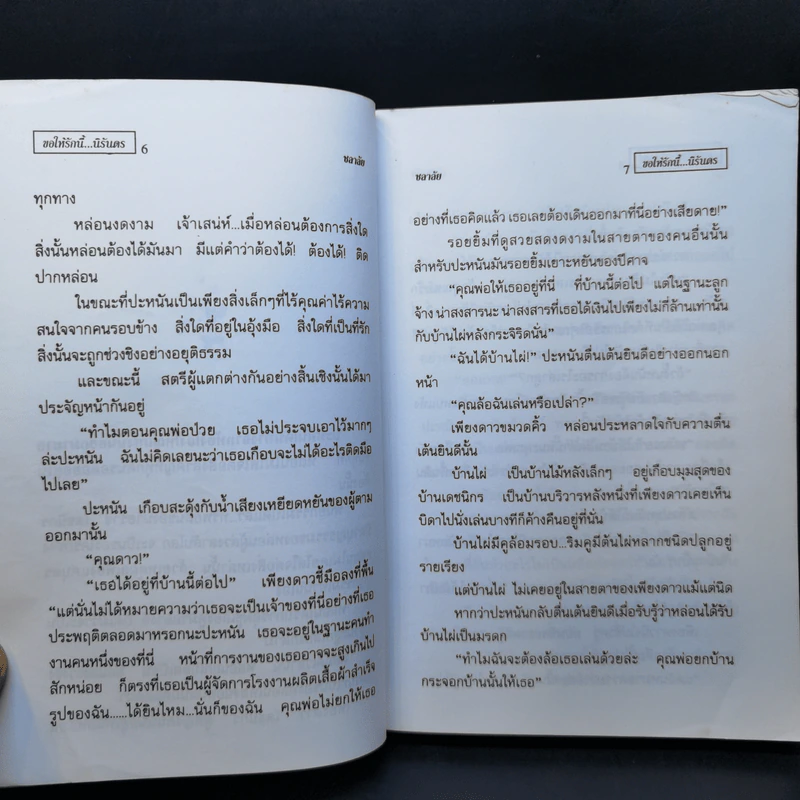 ขอให้รักนี้...นิรันดร
6
ชลาลัย
ทุกทาง
หล่อนงดงาม เจ้าเสน่ห์...เมื่อหล่อนต้องการสิ่งใด
สิ่งนั้นหล่อนต้องได้มันมา มีแต่คำว่าต้องได้! ต้องได้! ติด
ปากหล่อน
ในขณะที่ปะหนันเป็นเพียงสิ่งเล็กๆที่ไร้คุณค่าไร้ความ
สนใจจากคนรอบข้าง สิ่งใดที่อยู่ในอุ้งมือ สิ่งใดที่เป็นที่รัก
สิ่งนั้นจะถูกช่วงชิงอย่างอยุติธรรม
และขณะนี้ สตรีผู้แตกต่างกันอย่างสิ้นเชิงนั้นได้มา
ประจัญหน้ากันอยู่
“ทำไมตอนคุณพ่อป่วย เธอไม่ประจบเอาไว้มากๆ
ล่ะปะหนัน ฉันไม่คิดเลยนะว่าเธอเกือบจะไม่ได้อะไรติดมือ
ไปเลย”
ปะหนัน เกือบสะดุ้งกับน้ำเสียงเหยียดหยันของผู้ตาม
ออกมานั้น
“คุณดาว!”
“เธอได้อยู่ที่บ้านนี้ต่อไป” เพียงดาวชี้มือลงที่พื้น
“แต่นั่นไม่ได้หมายความว่าเธอจะเป็นเจ้าของที่นี่อย่างที่เธอ
ประพฤติตลอดมาหรอกนะปะหนัน เธอจะอยู่ในฐานะคนทำ
งานคนหนึ่งของที่นี่ หน้าที่การงานของเธออาจจะสูงเกินไป
สักหน่อย ก็ตรงที่เธอเป็นผู้จัดการโรงงานผลิตเสื้อผ้าสำเร็จ
รูปของฉัน......ได้ยินไหม...นั่นก็ของฉัน คุณพ่อไม่ยกให้เธอ
ชลาลัย
7
ขอให้รักนี้...นิรันดร
อย่างที่เธอคิดแล้ว เธอเลยต้องเดินออกมาที่นี่อย่างเสียดาย!”
รอยยิ้มที่ดูสวยสดงดงามในสายตาของคนอื่นนั้น
สำหรับปะหนันมันรอยยิ้มเยาะหยันของปีศาจ
“คุณพ่อให้เธออยู่ที่นี่ ที่บ้านนี้ต่อไป แต่ในฐานะลูก
จ้าง น่าสงสารนะ น่าสงสารที่เธอได้เงินไปเพียงไม่กี่ล้านเท่านั้น
กับบ้านไผ่หลังกระจิริดนั่น”
“ฉันได้บ้านไผ่!” ปะหนันตื่นเต้นยินดีอย่างออกนอก
หน้า
“คุณล้อฉันเล่นหรือเปล่า?”
เพียงดาวขมวดคิ้ว หล่อนประหลาดใจกับความตื่น
เต้นยินดีนั้น
บ้านไผ่ เป็นบ้านไม้หลังเล็กๆ อยู่เกือบมุมสุดของ
บ้านเดชนิกร เป็นบ้านบริวารหลังหนึ่งที่เพียงดาวเคยเห็น
บิดาไปนั่งเล่นบางทีก็ค้างคืนอยู่ที่นั่น
บ้านไผ่มีคูล้อมรอบ...ริมคูมีต้นไผ่หลากชนิดปลูกอยู่
รายเรียง
แต่บ้านไผ่ ไม่เคยอยู่ในสายตาของเพียงดาวแม้แต่นิด
หากว่าปะหนันกลับตื่นเต้นยินดีเมื่อรับรู้ว่าหล่อนได้รับ
บ้านไผ่เป็นมรดก
“ทำไมฉันจะต้องล้อเธอเล่นด้วยล่ะ คุณพ่อยกบ้าน
กระจอกบ้านนั้นให้เธอ”